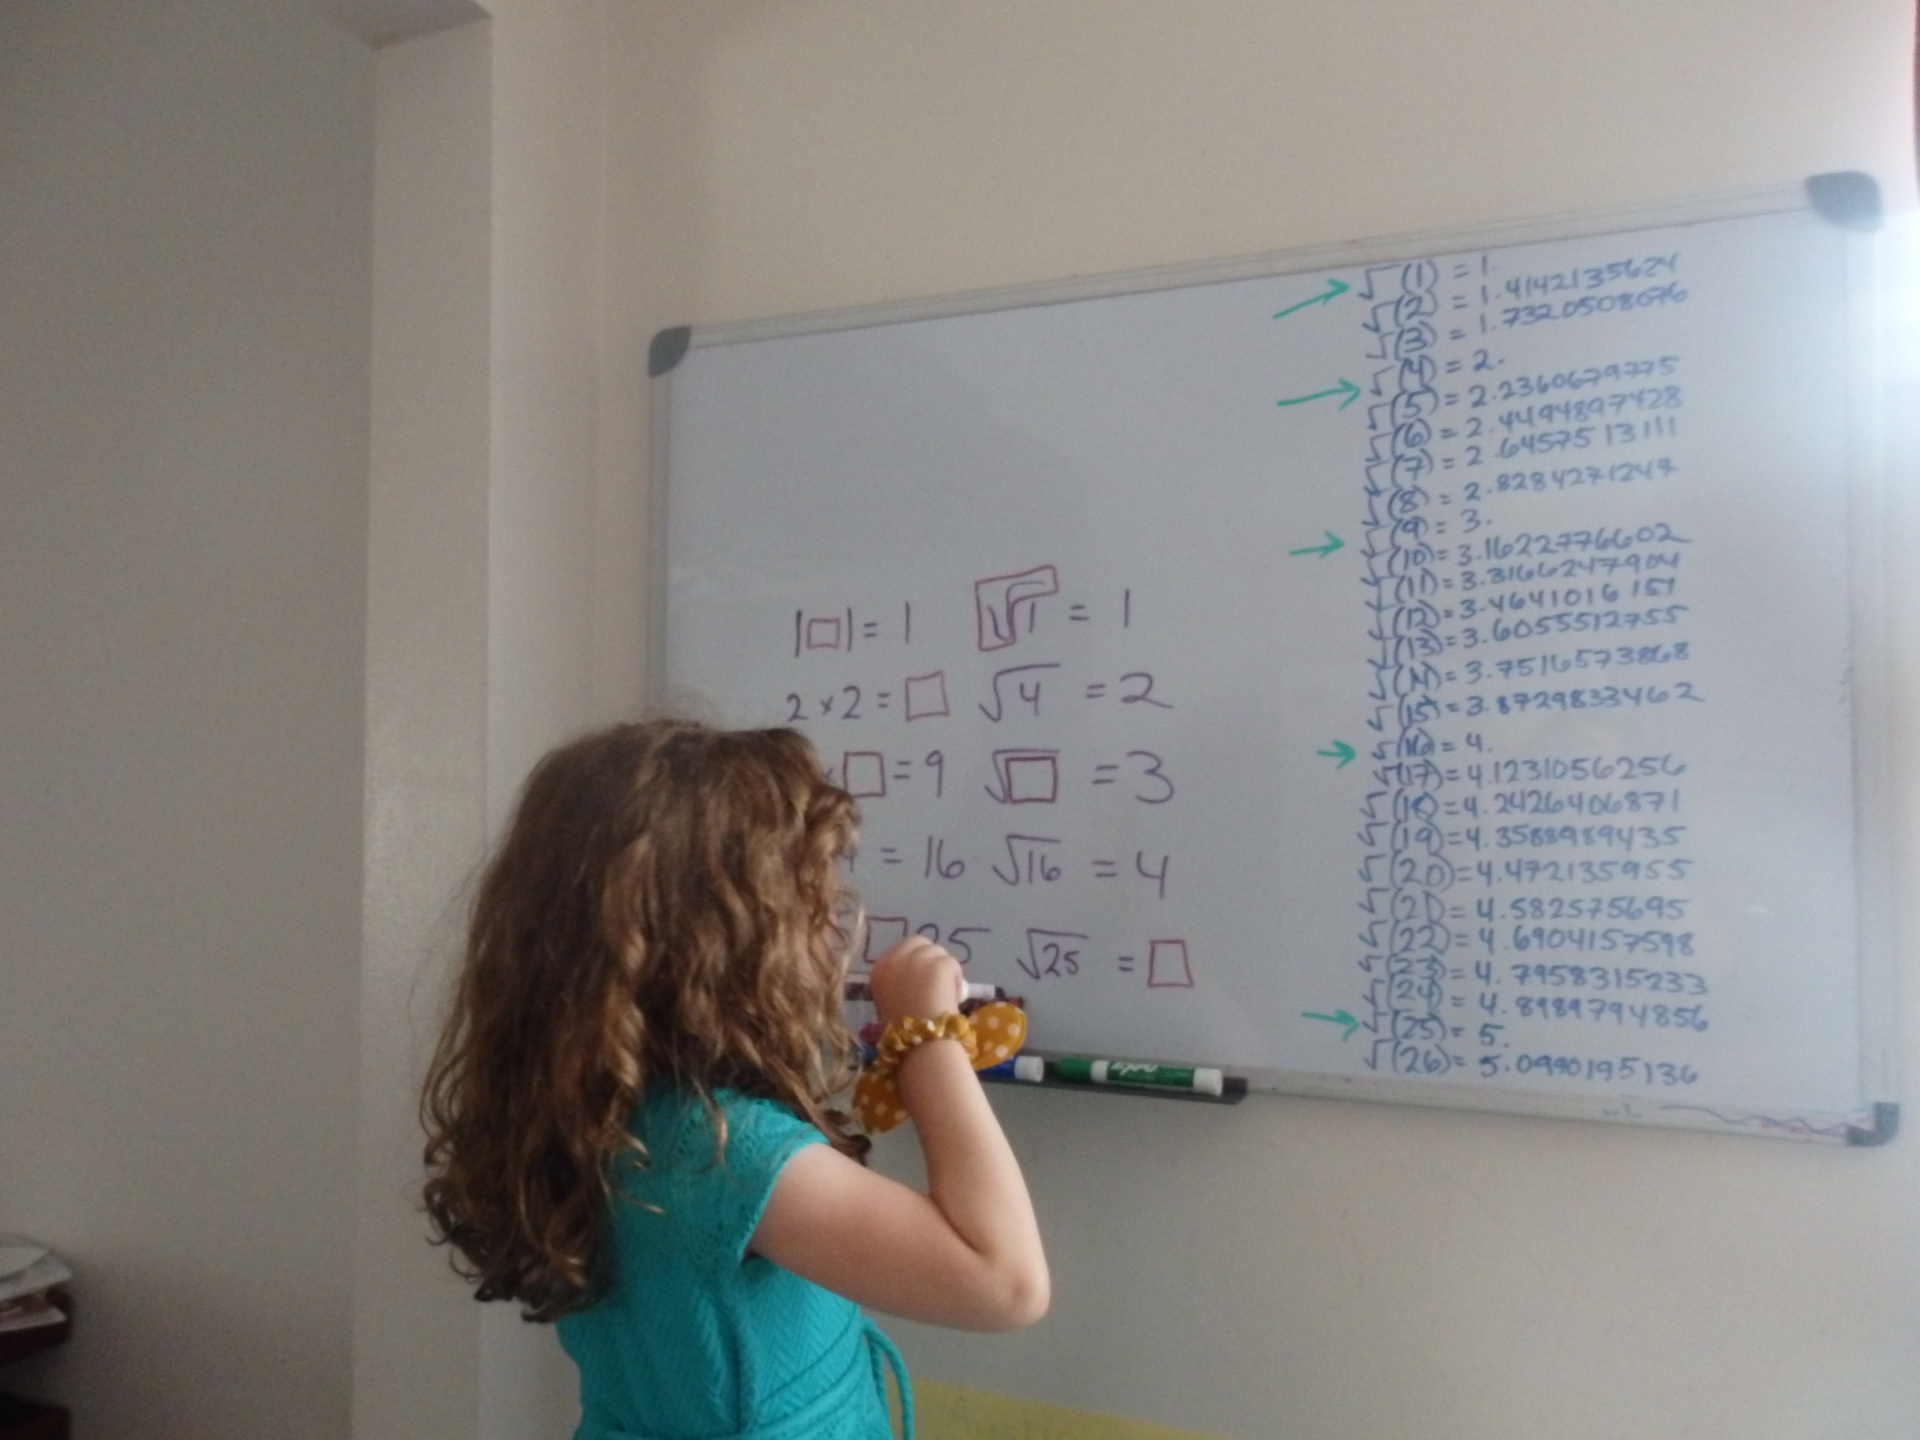 1 □ 1 = 1 √1 = 1
2 × 2 = □ √4 = 2
× □ = 9 √□ = 3
4 = 16 √16 = 4
5 □ 25 √25 = □
√(1) = 1.
√(2) = 1.4142135624
√(3) = 1.7320508076
√(4) = 2.
√(5) = 2.2360679775
√(6) = 2.4494897428
√(7) = 2.6457513111
√(8) = 2.8284271247
√(9) = 3.
√(10) = 3.1622776602
√(11) = 3.3166247904
√(12) = 3.4641016151
√(13) = 3.6055512755
√(14) = 3.7516573868
√(15) = 3.8729833462
√(16) = 4.
√(17) = 4.1231056256
√(18) = 4.2426406871
√(19) = 4.3588989435
√(20) = 4.472135955
√(21) = 4.582575695
√(22) = 4.6904157598
√(23) = 4.7958315233
√(24) = 4.8989794856
√(25) = 5.
√(26) = 5.0990195136
expo